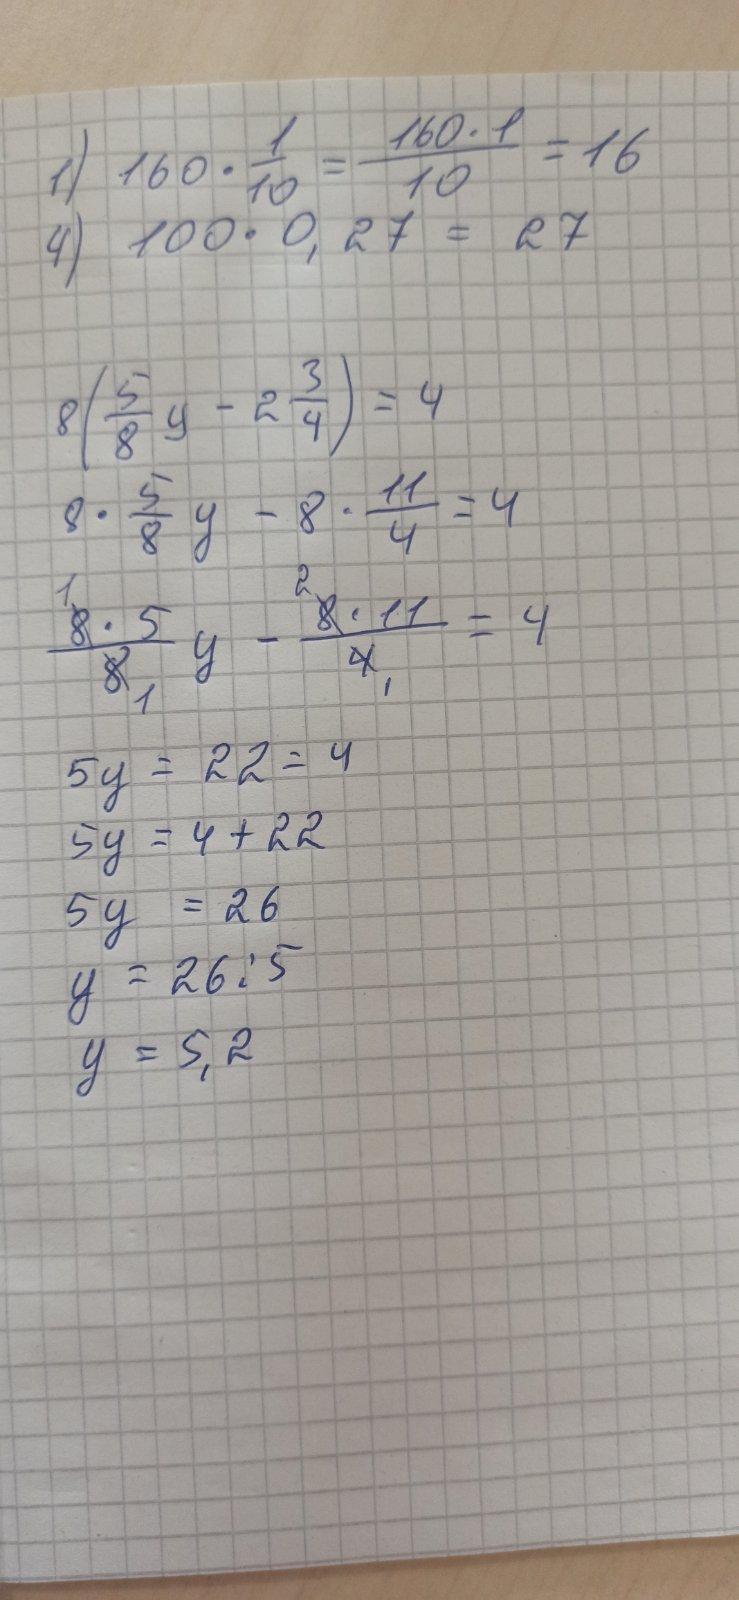 1) 160 · 1/10 = 160 · 1/10 = 16
4) 100 · 0,27 = 27
8(5/8 y - 2 3/4) = 4
8 · 5/8 y - 8 · 11/4 = 4
1 8 · 5/8 1 y - 2 8 · 11/4 1 = 4
5y = 22 = 4
5y = 4 + 22
5y = 26
y = 26 : 5
y = 5,2